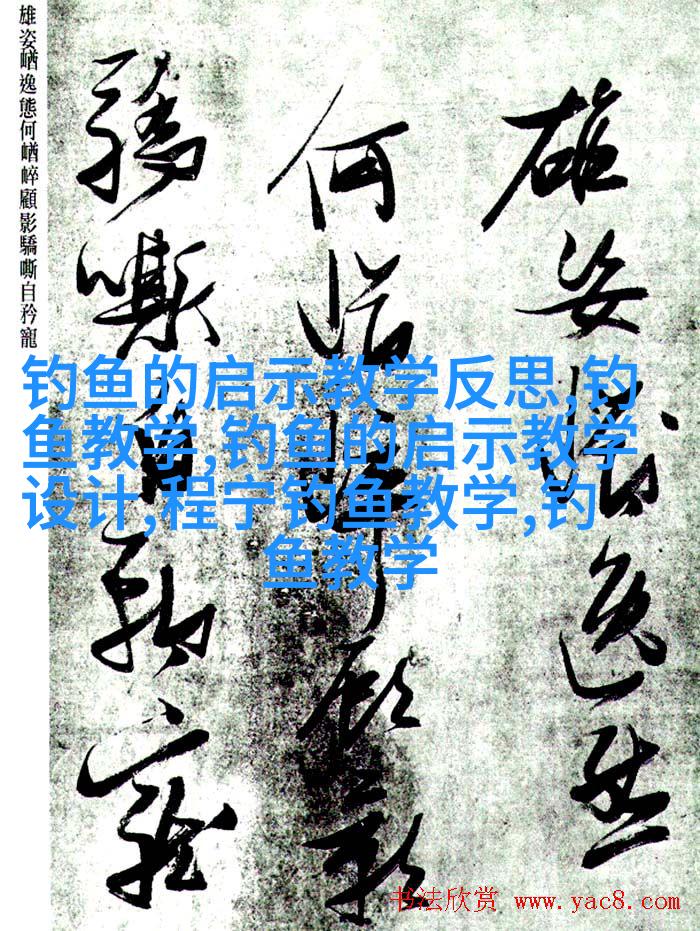 雄姿崷逸態
何崷崪顧影
驕嘶自矜寵
雄姿崷逸態何崷崪顧影驕嘶自矜寵
钓鱼的启示教学反思,钓
鱼教学,钓鱼的启示教学
设计,程宁钓鱼教学,钓
鱼教学
书法欣赏 www.yac8.com